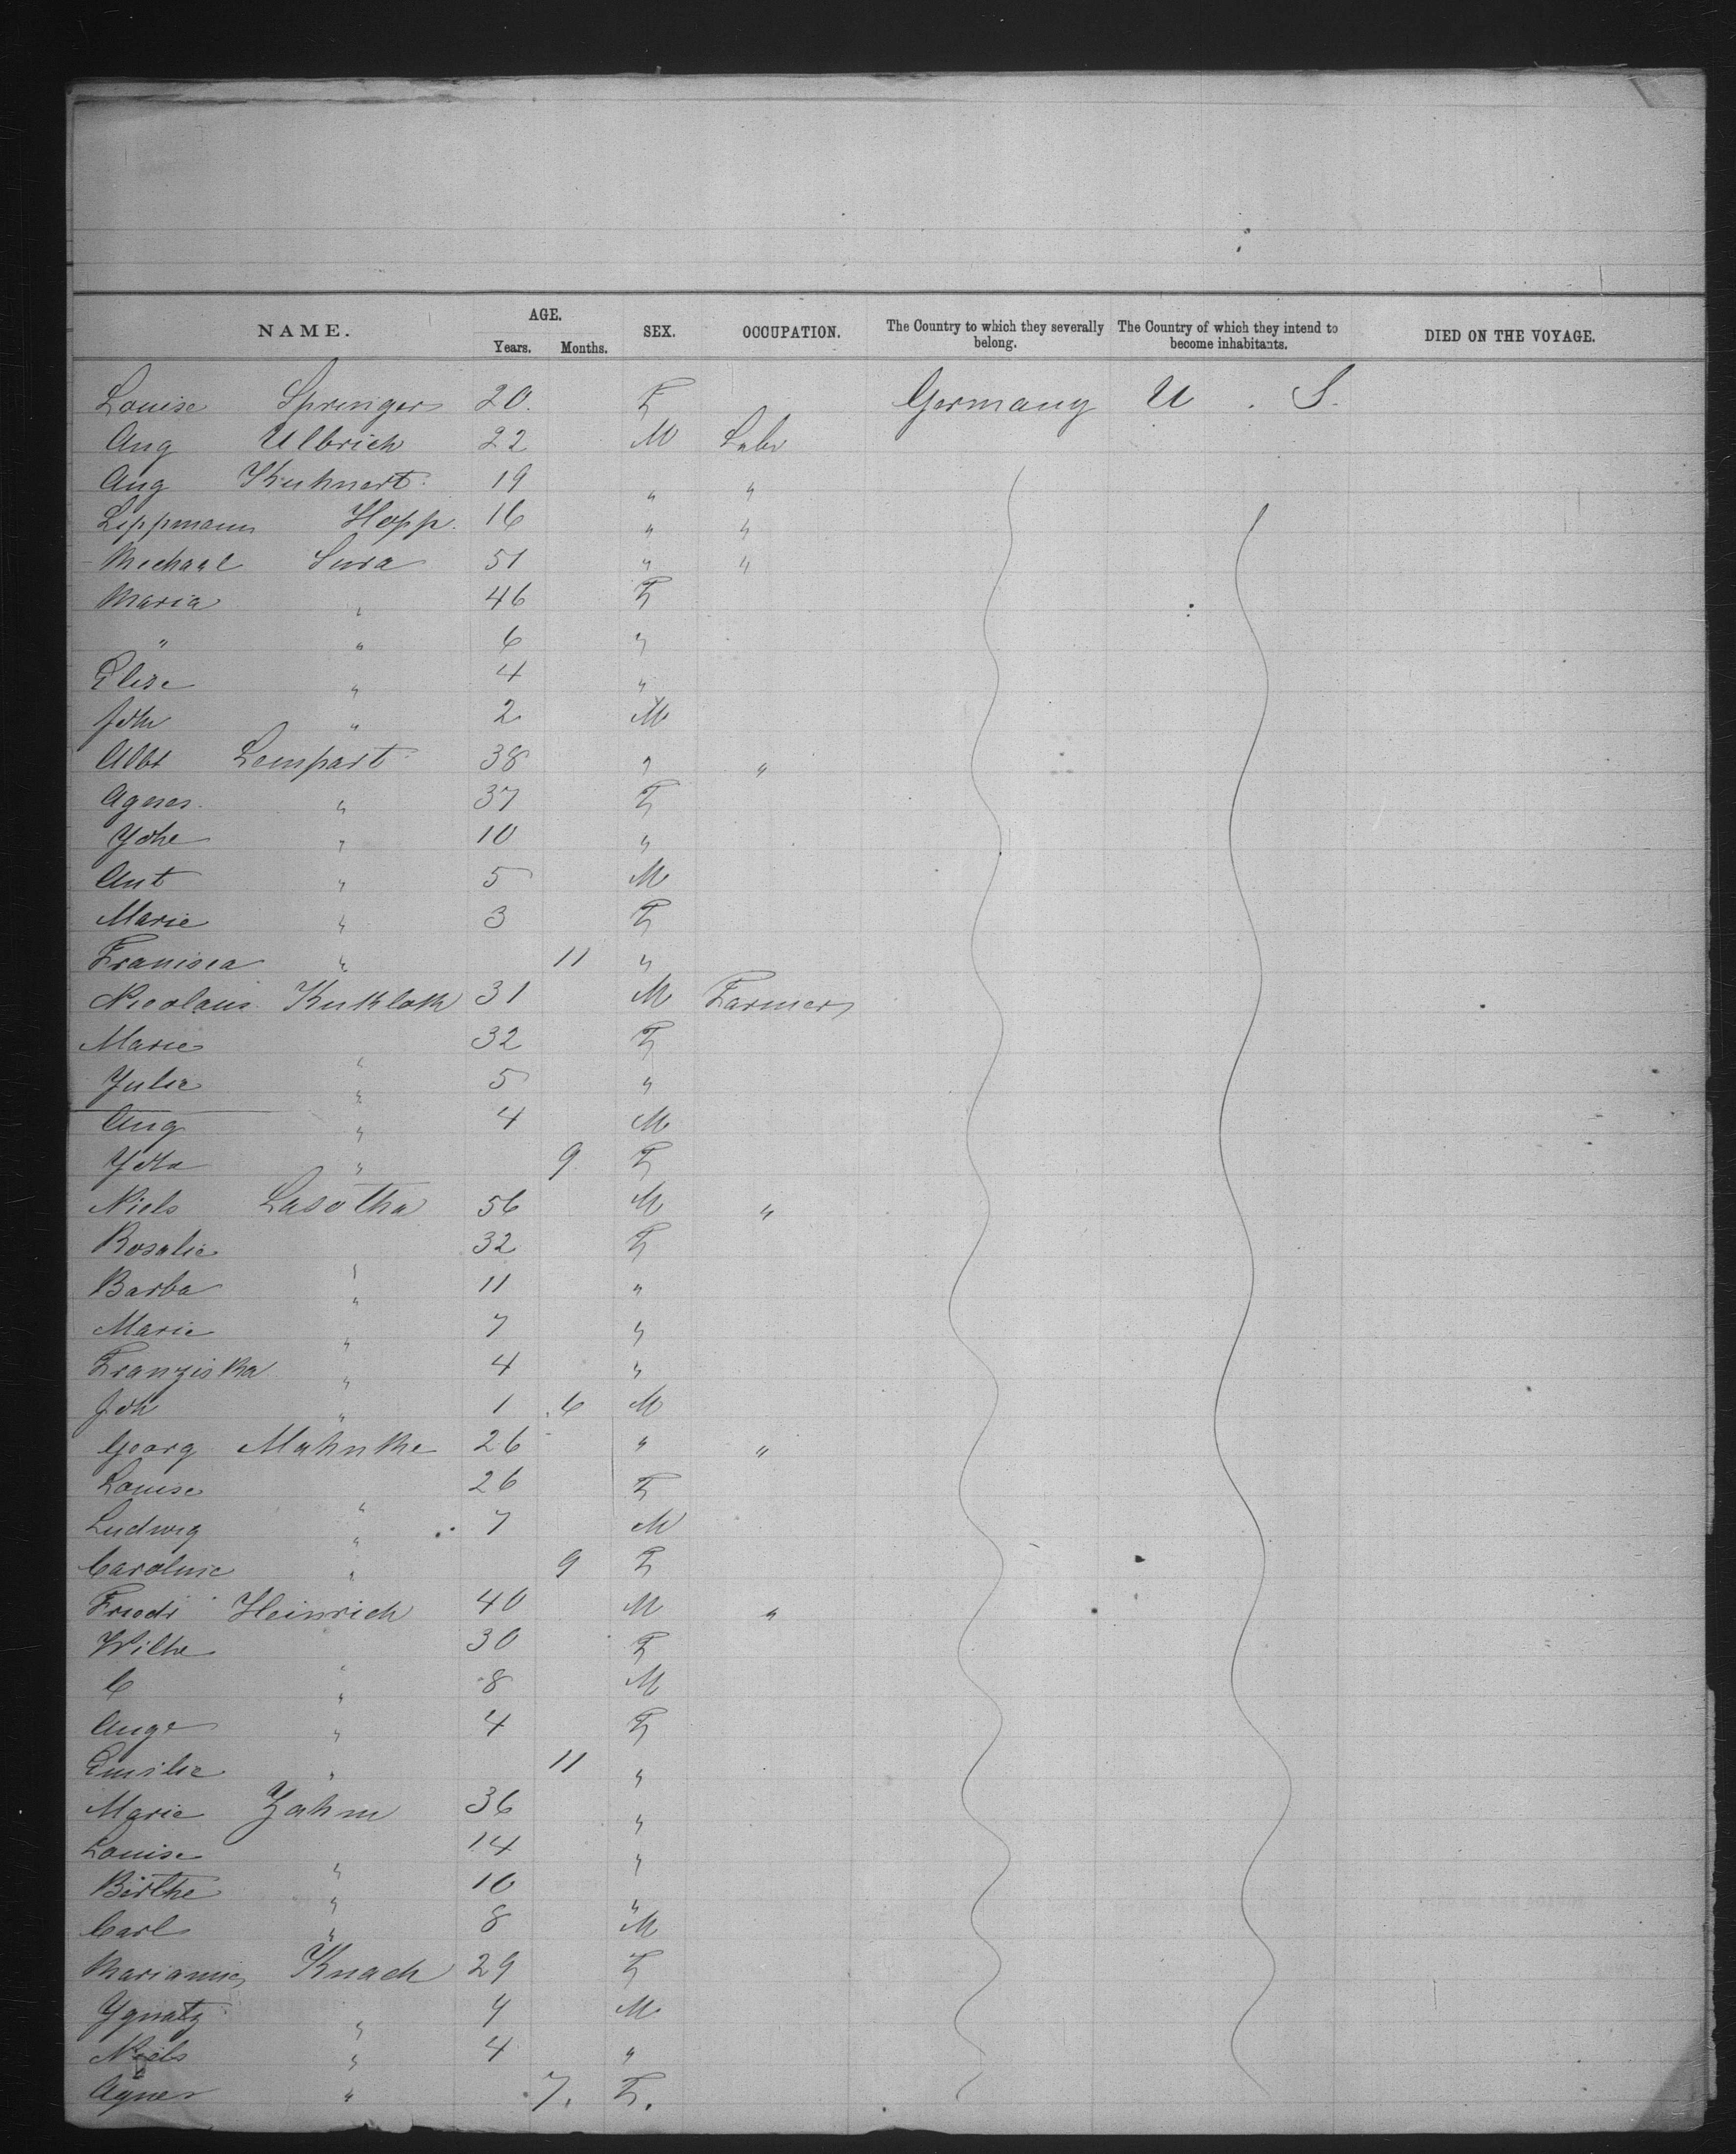 NAME. AGE. Years. Months. SEX. OCCUPATION. The Country to which they severally belong. The Country of which they intend to become inhabitants. DIED ON THE VOYAGE.
Louise Springer 20. F Germany U. S.
Aug Ulbrich 22 M Labr
Aug Kuhnert 19 " "
Lippmann Hopp. 16 " "
Michael Sura 51 " "
Maria " 46 F
" " 6 "
Elise " 4 "
Joh " 2 M
Albt Lempart 38 " "
Agnes " 37 F
Johe " 10 "
Ant " 5 M
Marie " 3 F
Franisca " 11 "
Nicolaus Kuklok 31 M Farmer
Marie " 32 F
Julie " 5 "
Aug " 4 M
" 9 F
Niels Lasotha 56 M "
Rosalie " 32 F
Barba " 11 "
Marie " 7 "
Franziska " 4 "
Joh " 1 6 M
Georg Mahnke 26 " "
Louise " 26 F
Ludwig " 7 M
Caroline " 9 F
Friedr Heinrich 40 M "
Wilhe " 30 F
C " 8 M
Auge " 4 F
Emilie " 11 "
Marie Zahm 36 "
Louise " 14 "
Berthe " 10 "
Carl " 8 M
Marianne Knach 29 F
Ygnatz " M
Niels " 4 "
Agnes " 7. F.